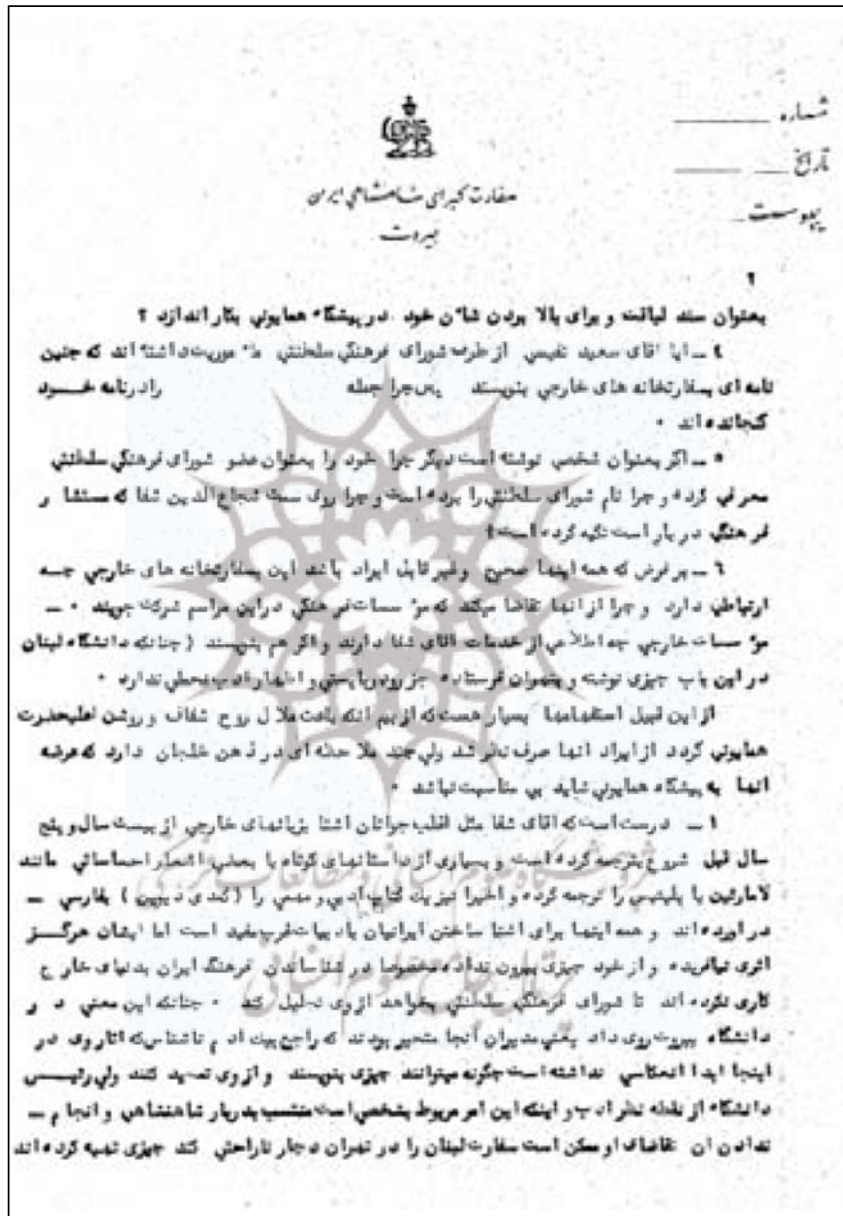 شماره
تاریخ
پیوست
سفارت کبرای شاهنشاهی ایران
بیروت
۲
بعنوان سند لیاقت و برای بالا بردن شاٴن خود در پیشگاه همایونی بکار اندازد ؟
٤ ــ ایا اقای سعید نفیسی از طرف شورای فرهنگی سلطنتی ماٴموریت داشته اند که چنین
نامه ای بسفارتخانه های خارجی بنویسند پس چرا جمله را در نامه خــــود
گنجانده اند ٠
٥ ــ اگر بعنوان شخصی نوشته است دیگر چرا خود را بعنوان عضو شورای فرهنگی سلطنتی
معرفی کرده و چرا نام شورای سلطنتی را برده است و چرا روی سمت شجاع الدین شفا که مستشا ر
فرهنگی دربار است تکیه کرده است ؟
٦ ــ بر فرض که همه اینها صحیح و غیر قابل ایراد باشد این بسفارتخانه های خارجی چــه
ارتباطی دارد و چرا از انها تقاضا میکند که موٴسسات فرهنگی در این مراسم شرکت جویند ٠ ــ
موٴسسات خارجی چه اطلاعی از خدمات اقای شفا دارند و اگر هم بنویسند ( چنانکه دانشگاه لبنان
در این باب چیزی نوشته و بتهران فرستاده جز رودربایستی و اظهار ادب محملی ندارد ٠
از این قبیل استفهامها بسیار هست که از بیم انکه باعث ملال روح شفاف و روشن اعلیحضرت
همایونی گردد از ایراد انها صرف نظر شد ولی چند ملاحظه ای در ذهن خلجان دارد که عرضه
انها به پیشگاه همایونی شاید بی مناسبت نباشد ٠
١ ــ درست است که اقای شفا مثل اغلب جوانان اشنا بزبانهای خارجی از بیست سال و پنج
سال قبل شروع بترجمه کرده است و بسیاری از داستانهای کوتاه یا بعضی اشعار احساساتی مانند
لامارتین یا بلیتیس را ترجمه کرده و اخیرا نیز یک کتاب ادبی و مهمی را ( کمدی دیوین ) بفارسی ــ
در اورده اند و همه اینها برای اشنا ساختن ایرانیان بادبیات غرب مفید است اما ایشان هرگـــز
اثری نیافریده و از خود چیزی بیرون نداده مخصوصا در شناساندن فرهنگ ایران بدنیای خارج
کاری نکرده اند تا شورای فرهنگی سلطنتی بخواهد از وی تجلیل کند ٠ چنانکه این معنی د ر
دانشگاه بیروت روی داد یعنی مدیران انجا متحیر بودند که راجع بیک ادم ناشناس که اثار وی در
اینجا ابدا انعکاسی نداشته است چگونه میتوانند چیزی بنویسند و از وی تمجید کنند ولی رئیـــس
دانشگاه از نقطه نظر ادب و اینکه این امر مربوط بشخصی است منتسب بدربار شاهنشاهی و انجام ــ
ندادن ان تقاضا او ممکن است سفارت لبنان را در تهران دچار ناراحتی کند چیزی تهیه کرده اند
پژوهشگاه علوم انسانی و مطالعات فرهنگی
پرتال جامع علوم انسانی